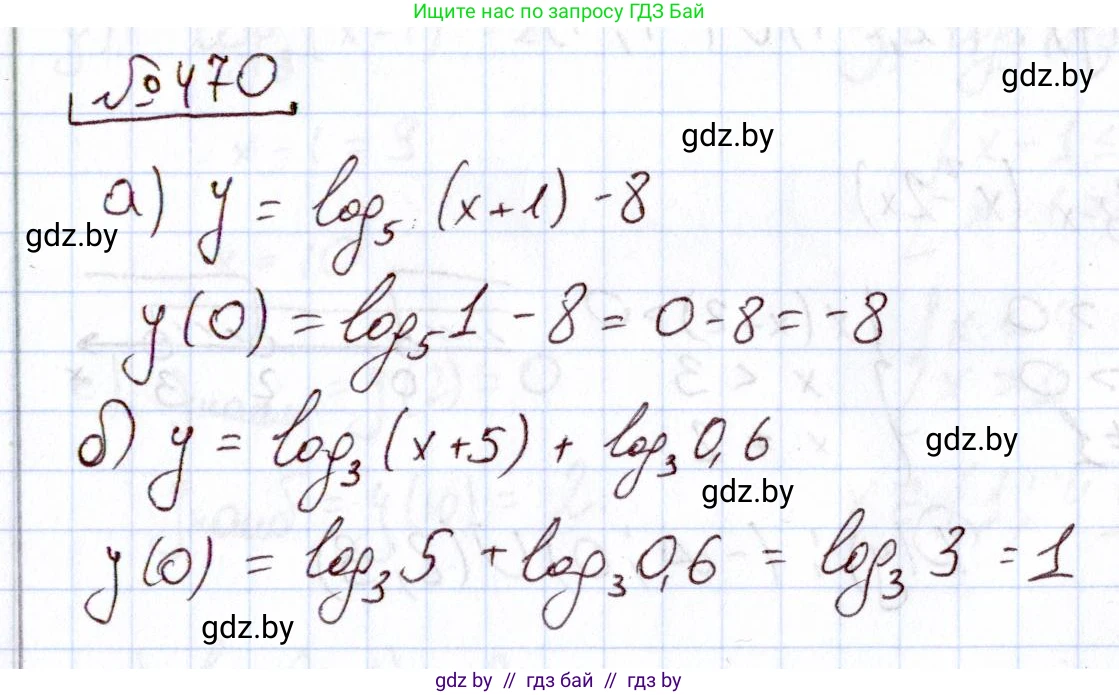 Ищите нас по запросу ГДЗ Бай
№470
gdz.by
gdz.by
а) y = log₅ (x+1) - 8
gdz.by
y(0) = log₅1 - 8 = 0-8 = -8
б) y = log₃ (x+5) + log₃ 0,6
gdz.by
gdz.by
y(0) = log₃ 5 + log₃ 0,6 = log₃ 3 = 1
gdz.by
gdz.by // гдз бай // гдз by